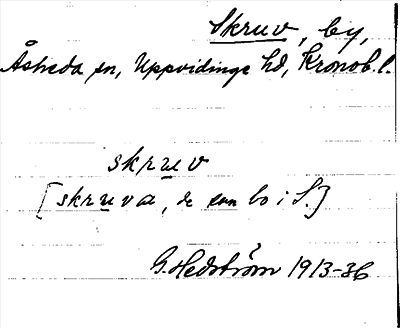 Skruv, by,
Åsheda sn, Uppvidinge hd, Kronob. l.
skruv
[skruva, de som bo i S.]
G. Hedström 1913-36